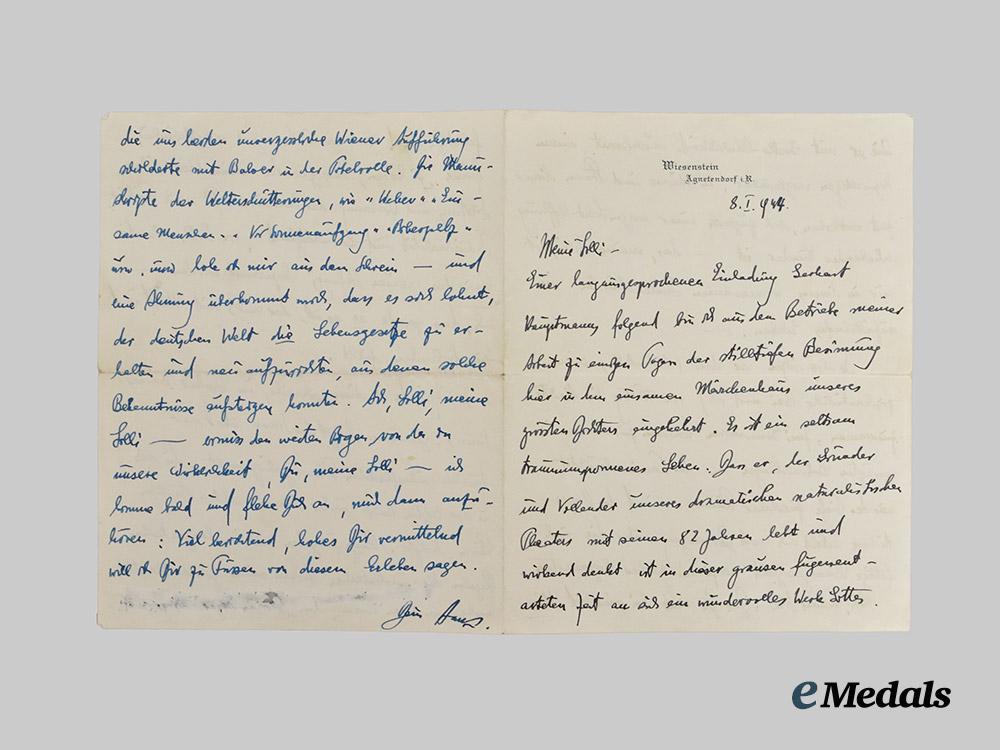 Wiesenstein
Agnetendorf i.R.
8. I. 944.
Meine Lolli –
Einer langausgesprochenen Einladung Gerhart
Hauptmanns folgend bin ich aus dem Betriebe meiner
Arbeit zu einigen Tagen der stilltiefen Besinnung
hier in dem einsamen Märchenhaus unseres
grössten Dichters eingekehrt. Es ist ein seltsam
traumumsponnenes Leben: Dass er, der Gründer
und Vollender unseres dramatischen naturalistischen
Theaters mit seinen 82 Jahren lebt und
wirkend denkt ist in dieser grausen
arteten Zeit an sich ein wundervolles Werk Gottes.
die uns beiden unvergessliche Wiener Aufführung
schilderte mit Balser in der Titelrolle. Die Manu-
skripte der Welterschütterungen, wie "Weber" "Ein-
same Menschen" "Vor Sonnenaufgang" "Biberpelz"
usw. usw. hole ich mir aus dem Schrein — und
eine Ahnung überkommt mich, dass es sich lohnt,
der deutschen Welt die Lebensgesetze zu er-
halten und neu aufzurichten, aus denen solche
Bekenntnisse aufsteigen konnten. Ach, Lolli, meine
Lolli — ermiss den weiten Bogen, von da in
unsere Wirklichkeit, Du, meine Lolli — ich
komme bald und flehe Dich an, mich dann anzu-
hören: Viel berichtend, hohes Dir vermittelnd
will ich Dir zu Füssen von diesem Erleben sagen.
Dein
eMedals